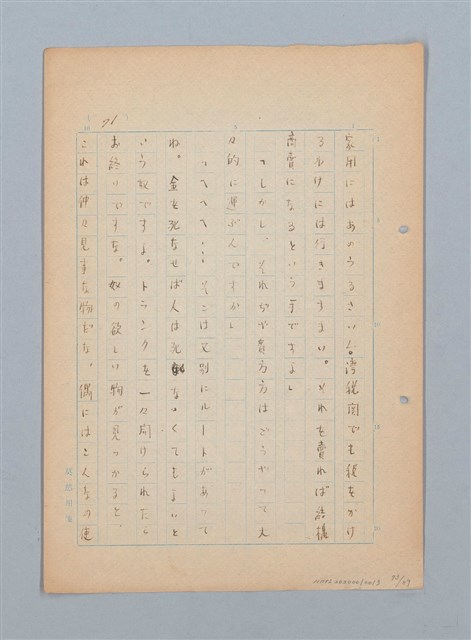 91
家用にはあのうるさい台湾税関でも税をかけ
るわけには行きますまい。それを売れば結構
商売になるという手ですよ」
「しかし、それぢや貴方方はどうやつて大
々的に運ぶんですか」
「へへへ……そこは又別にルートがあつて
ね。金を死なせば人は死なゝくてもよいと
いう奴ですよ。トランクを一々開けられたら
お終いですな。奴の欲しい物が見つかると、
これは仲々見事な物だな。偶にはこんなの使